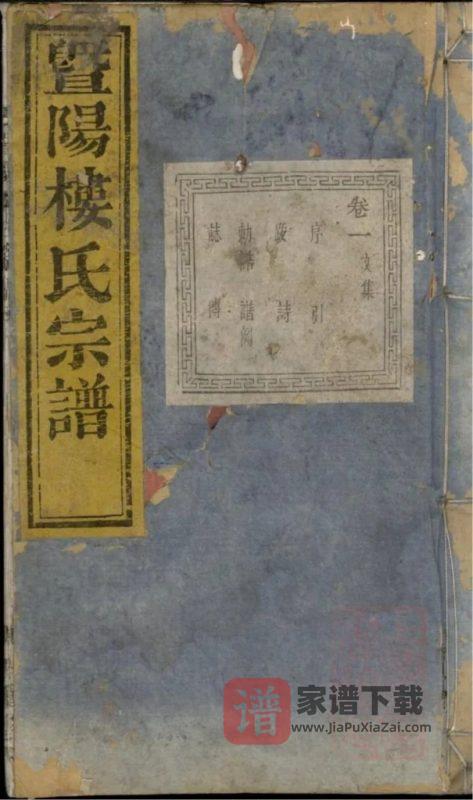 暨陽樓氏宗譜
卷一 文集
序 引
跋 詩
勅 譜例
誌 傳
谱
家谱下载
www.JiaPuXiaZai.com